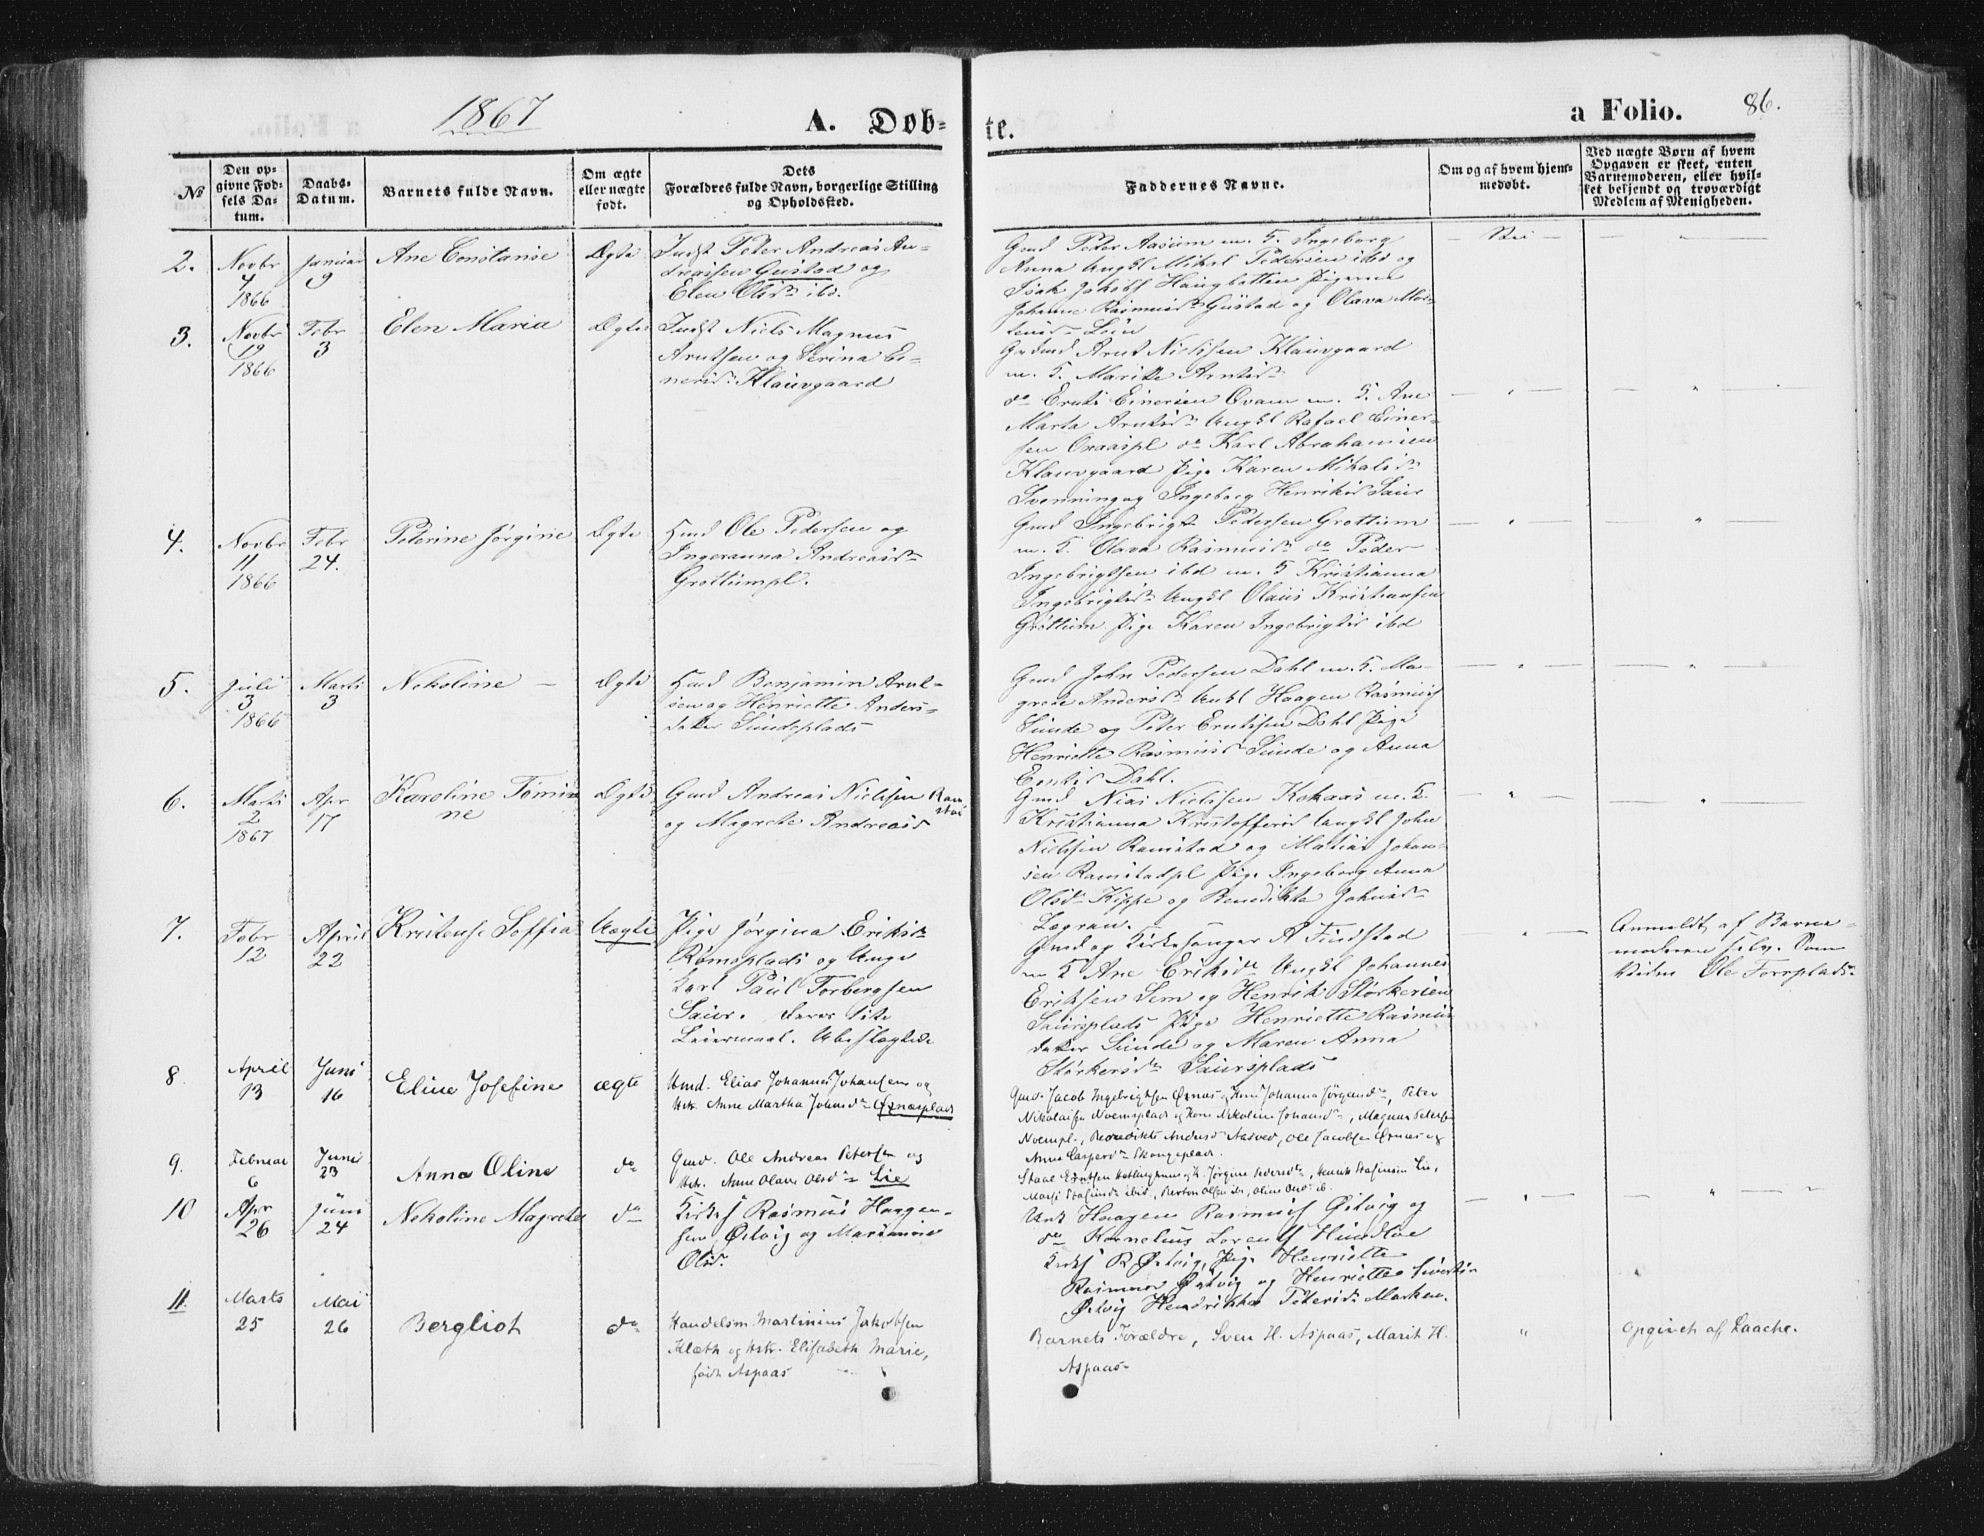 1867
A. Døb-
te.
a Folio. 86.
№
Den op-
givne Fød-
sels Da-
tum.
Daabs-
Datum.
Barnets fulde Navn.
Om ægte
eller uægte
født.
Dets
Forældres fulde Navn, borgerlige Stilling
og Opholdssted.
Faddernes Navne.
Om og af hvem hjem-
medøbt.
Ved uægte Børn af hvem
Opgaven er skeet, enten
Barnemoderen, eller hvil-
ket bekjendt og troværdigt
Medlem af Menigheden.
2.
Novbr
4
1866
Januar
9
Ane Constanse
Ægte
Indst Peter Andreas An-
dreassen Gustad og
Elen Olsdr ibd.
Gmd Peder Aasum m. K. Ingeborg
Anna Ungkl Mikal Pedersen ibd og
Isak Jakobs Haugbakken Pigerne
Johanne Rasmusdr Gustad og Olava Mor-
tensdr Lein
Nei
3.
Novbr
19
1866
Febr
3
Elen Maria
Ægte
Indst Niels Magnus
Arntsen og Serina Ei-
nersdr Klauvgaard
Gaardmd Arnt Nielssen Klauvgaard
m. K. Marith Arntsdr
do Ernts Einersen Qvam m. K. Ane
Marta Arntsdr Ungkl Rafael Einer-
sen Qvamspl do Karl Abrahamsen
Klauvgaard Pige Karen Mikalsdr
Svenning og Ingeborg Henriksd Saur
4.
Novbr
11
1866
Febr
24.
Peterine Jørgine
Ægte
Hmd Ole Pedersen og
Ingeranna Andreasdr
Grøttumpl.
Gmd Ingebrigt Pedersen Grøttum
m. K. Olava Rasmusdr do Peder
Ingebrigtsen ibd m. K Kristianna
Ingebrigtsdr Ungkl Olaus Kristiansen
Grøttum Pige Karen Ingebrigtsd ibd
5.
Juli
3
1866
Marts
3
Nekoline
Ægte
Hmd Benjamin Arnt-
sen og Henriette Anders-
datter Sundsplads
Gmd John Pedersen Dahl m. K. Ma-
grete Andersd Ungkl Haagen Rasmuss
Sunde og Peter Erntssen Dahl Pige
Henriette Rasmusd Sunde og Anna
Erntsd Dahl.
6.
Marts
2
1867
Apr
17
Karoline Tømi-
ne
Ægte
Gmd Andreas Nielssen Ram-
stad
og Magrete Andreasd
Gmd Nias Nielssen Kokaas m. K.
Kristianna Kristoffersd Ungkl John
Nielssen Ramstad og Matias Johan-
sen Ramstadpl Pige Ingeborg Anna
Olsd Kippe og Benedikta Johnsdr
Lægran.
7.
Febr
12
April
22
Kristense Soffia
Uægte
Pige Jørgina Eriksdr
Rømsplads og Unge
Karl Paul Torbergsen
Saur. Deres 1ste
Leiermaal. Ubeslægtede
Gmd og Kirkesanger A Findstad
m K Ane Eriksdr Ungkl Johannes
Eriksen Sem og Henrik Størkersen
Saursplads Pige Henriette Rasmus
datter Sunde og Maren Anna
Størkersdr Saursplads
Anmeldt af Barne-
moderen selv. Som
Vidne Ole Forrplads.
8
April
13
Juni
16
Eline Josefine
ægte
Hmd. Elias Johannes Johansen og
Hstr. Anne Martha Johnsdr Øxnæsplads
Gmd. Jacob Ingebrigtsen Øxnæs og Kone Johanna Jørgensdr, Peter
Nikolaisen Noemsplads og Kone Nikoline Johansdr, Magnus Peterse
Noempl., Benedikte Andersd Aasved, Ole Jacobsen Øxnæs og
Anne Caspersdr Skongsplads.
9.
Februar
6
Juni
23
Anna Oline
do
Gmd. Ole Andreas Petersen og
Hstr. Anne Olava Olsdr Lie
10
Apr
26
Juni
24
Nekoline Magrete
do
Kirkes Rasmus Haagen-
sen Østvig og Marianne
Olsd.
Unk Haagen Rasmuss Østvig og
do Kornelius Lorents Hundloe
Kirks R Østvig, Pige Henriette
Rasmusd Østvig og Henriette Sivertsdr
Østvig Hendrikka Petersdr Marken.
11.
Marts
25
Mai
26
Bergliot
do
Handelsm Martinius Jakobsen
Klæth og Hstr. Elisabeth Marie,
født Aspaas
Barnets Forældre, Sven H. Aspaas, Marit H.
Aspaas
opgivet af Laache.